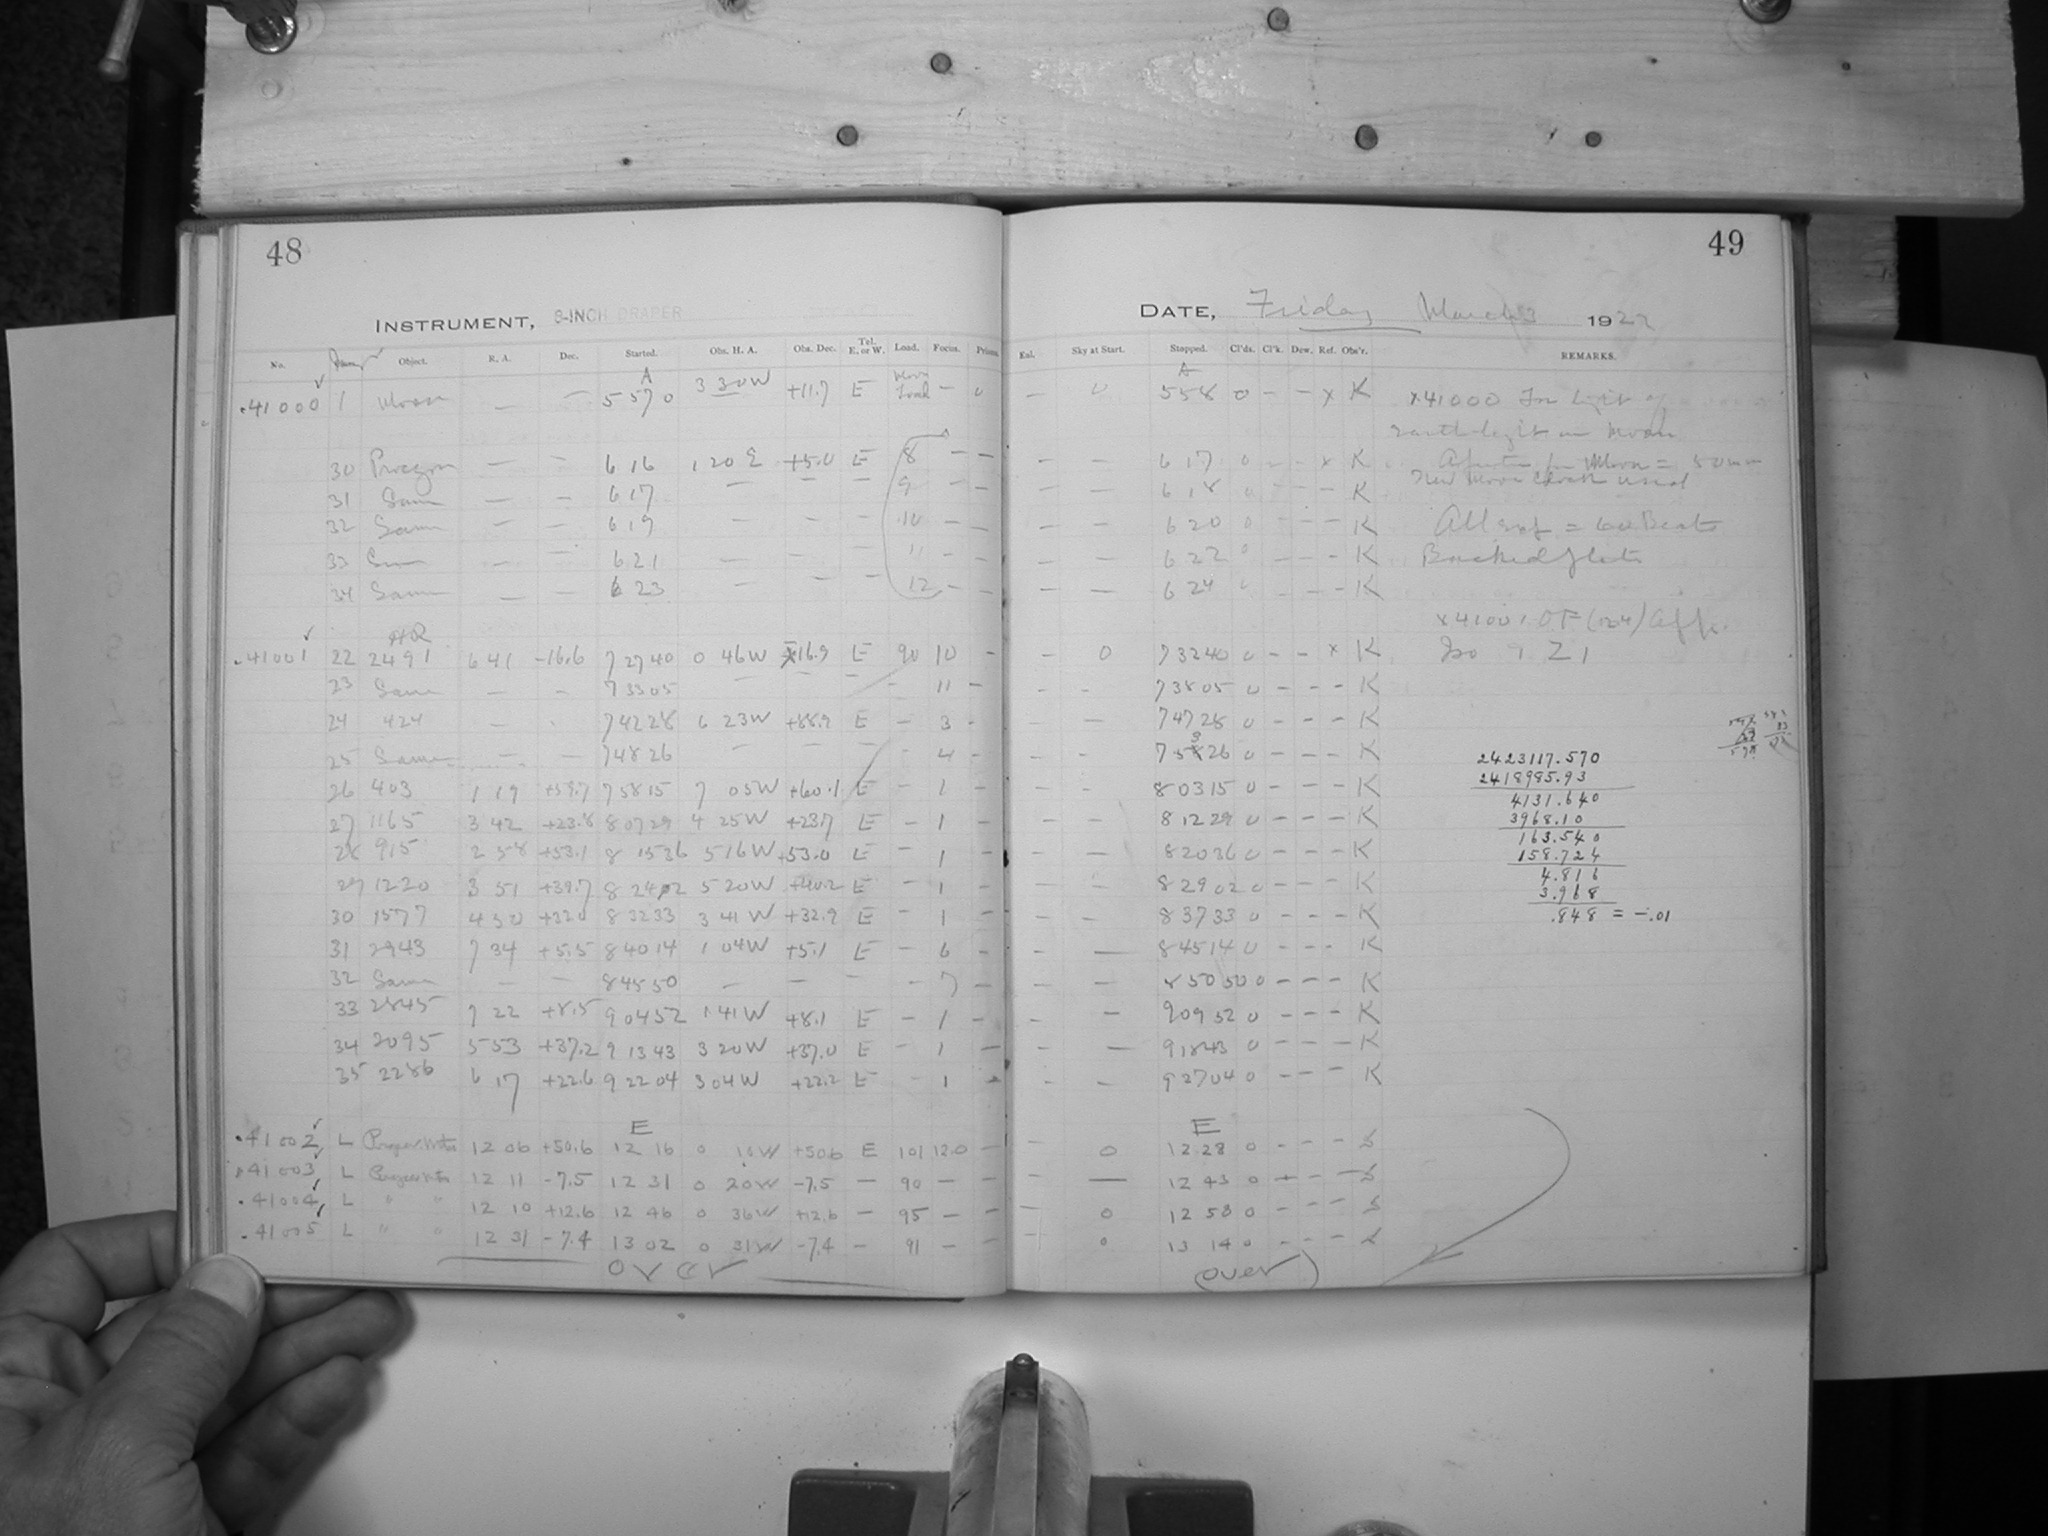 48
INSTRUMENT, 8-INCH DRAPER
No. Object. R. A. Dec. Started. Obs. H. A. Obs. Dec. Tel. E. or W. Load. Focus. Prism.
A
.41000 1 Moon — — 5 57 0 3 30 W +11.7 E — 0
30 Procyon — — 6 16 1 20 E +5.0 E 8 — —
31 Same — — 6 17 — — — 9 — —
32 Same — — 6 19 — — — 10 — —
33 Same — — 6 21 — — — 11 — —
34 Same — — 6 23 — — — 12 — —
HR
.41001 22 2491 6 41 -16.6 7 27 40 0 46 W -16.9 E 90 10 —
23 Same — — 7 33 05 — — — - 11 —
24 424 — - 7 42 28 6 23 W +88.9 E - 3 -
25 Same — — 7 48 26 — — — - 4 —
26 403 1 19 +59.7 7 58 15 7 05 W +60.1 E - 1 -
27 1165 3 42 +23.8 8 07 29 4 25 W +23.7 E - 1 -
28 915 2 58 +53.1 8 15 36 5 16 W +53.0 E - 1 -
29 1220 3 51 +39.7 8 24 02 5 20 W +40.2 E - 1 -
30 1577 4 50 +32.0 8 32 33 3 41 W +32.9 E - 1 -
31 2943 7 34 +5.5 8 40 14 1 04 W +5.1 E - 6 -
32 Same — — 8 45 50 — — — - 7 -
33 2845 7 22 +8.5 9 04 52 1 41 W +8.1 E - 1 -
34 2095 5 53 +37.2 9 13 43 3 20 W +37.0 E - 1 —
35 2286 6 17 +22.6 9 22 04 3 04 W +22.2 E - 1 -
E
.41002 L Proper Motion 12 06 +50.6 12 16 0 10 W +50.6 E 101 12.0 —
.41003 L Proper Motion 12 11 -7.5 12 31 0 20 W -7.5 — 90 — —
.41004 L " " 12 10 +12.6 12 46 0 36 W +12.6 — 95 — —
.41005 L " " 12 31 -7.4 13 02 0 31 W -7.4 — 91 — —
over
49
DATE, Friday March 3 1922
Sky at Start. Stopped. Cl'ds. Cl'k. Dew. Ref. Obs'r. REMARKS.
A
— 0 5 58 0 - - x K x41000 For light of
earthlight on Moon
— — 6 17 0 - - x K Aperture for Moon = 50mm
— — 6 18 0 - - - K New Moon clock used
— — 6 20 0 - - - K All exp = 60 Beats
— — 6 22 0 - - - K Backed plate
— — 6 24 0 - - - K
x41001 OF (124)
— 0 7 32 40 0 - - x K Iso 9 Z 1
- - 7 38 05 0 - - - K
- — 7 47 28 0 - - - K
- — 7 53 26 0 - - - K
- - 8 03 15 0 - - - K
- — 8 12 29 0 - - - K
- — 8 20 36 0 - - - K
- — 8 29 02 0 - - - K
- — 8 37 33 0 - - - K
- — 8 45 14 0 - - - K
- — 8 50 50 0 - - - K
- — 9 09 52 0 - - - K
- — 9 18 43 0 - - - K
- — 9 27 04 0 - - - K
2423117.570
2418985.93
4131.640
3968.10
163.540
158.724
4.816
3.968
.848 = -.01
E
— 0 12 28 0 - - -
— — 12 43 0 - - -
- 0 12 58 0 - - -
- 0 13 14 0 - - -
(over)